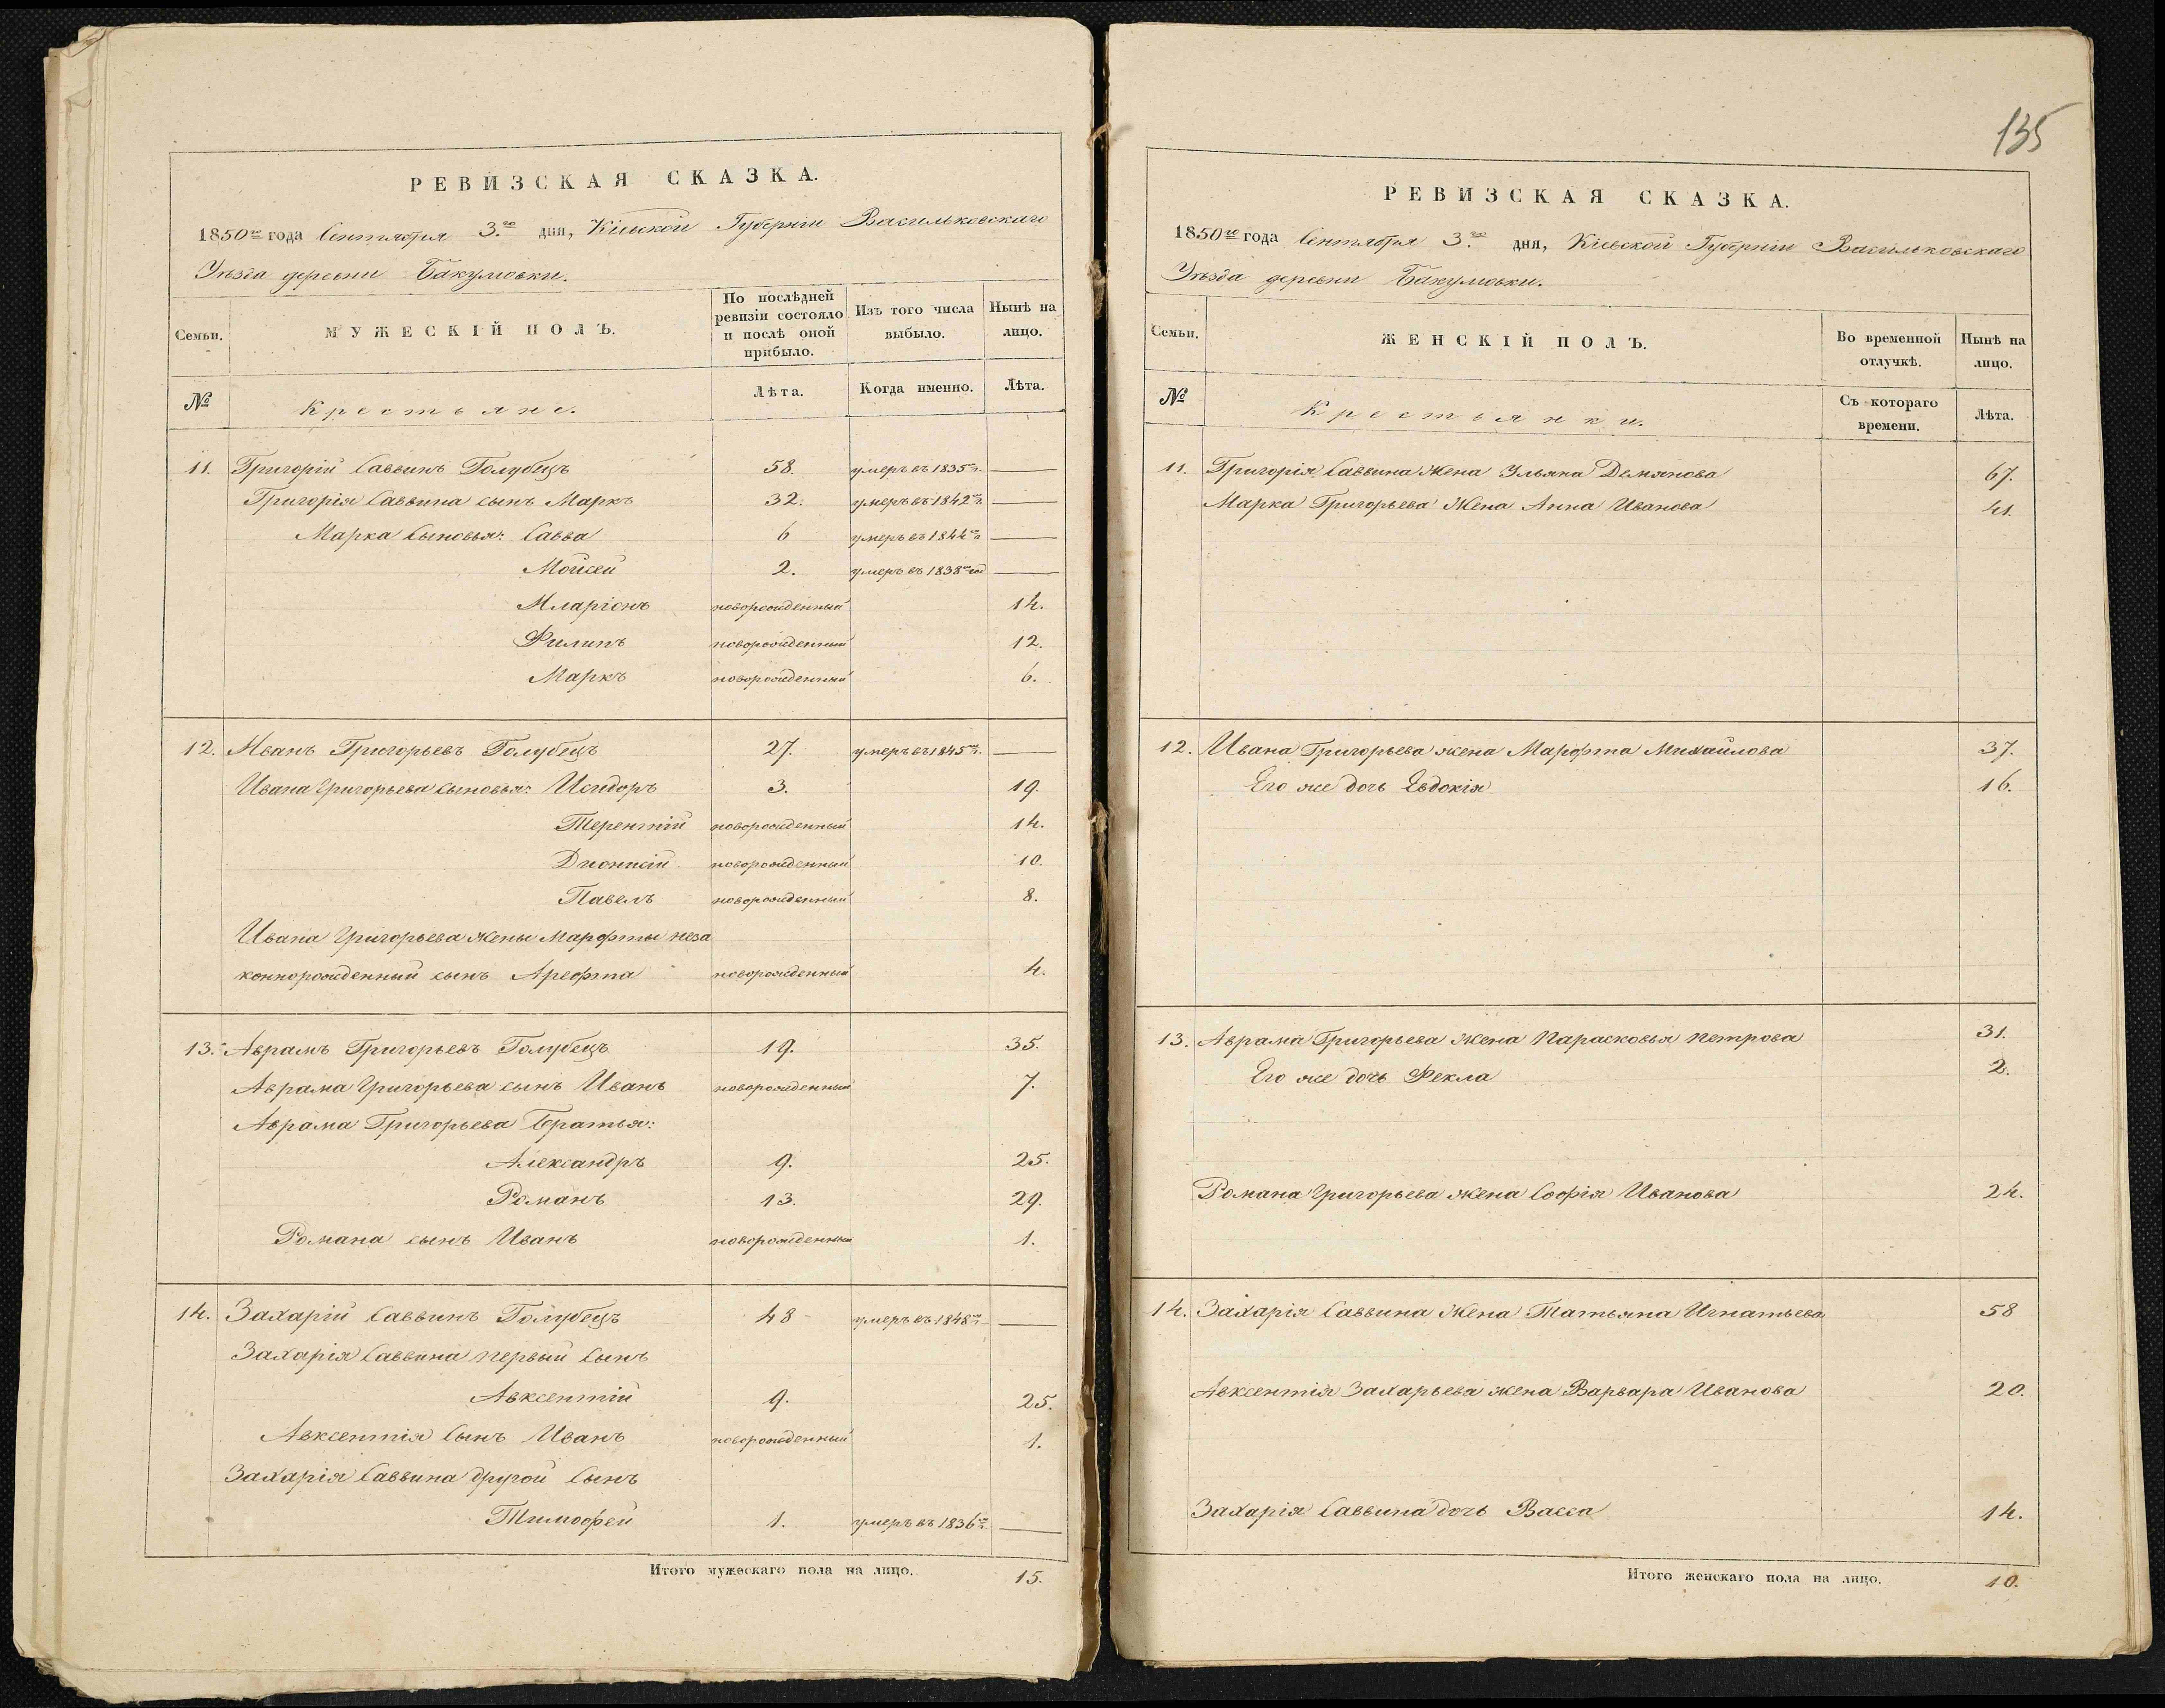 РЕВИЗСКАЯ СКАЗКА.
1850го года Сентября 3.го дня, Кіевской Губерніи Васильковскаго
Уѣзда деревни Бакумовки.
Семьи.
МУЖЕСКІЙ ПОЛЪ.
По послѣдней ревизіи состояло и послѣ оной прибыло.
Изъ того числа выбыло.
Нынѣ на лицо.
№
Крестьяне.
Лѣта.
Когда именно.
Лѣта.
11. Григорій Саввинъ Голубецъ 58. умеръ въ 1835 г. —
Григорія Саввина сынъ Маркъ 32. умеръ въ 1842 г. —
Марка Сыновья: Савва 6 умеръ въ 1844 г. —
Мойсей 2. умеръ въ 1838 год —
Иларіонъ новорожденный 14.
Филипъ новорожденный 12.
Маркъ новорожденный 6.
12. Иванъ Григорьевъ Голубецъ 27. умеръ въ 1845 г. —
Ивана Григорьева сыновья: Исидоръ 3. 19.
Терентій новорожденный 14.
Дионисій новорожденный 10.
Павелъ новорожденный 8.
Ивана Григорьева жены Марфты неза
коннорожденный сынъ Арефта новорожденный 4.
13. Аврамъ Григорьевъ Голубецъ 19. 35.
Аврама Григорьева сынъ Иванъ новорожденный 7.
Аврама Григорьева Братья:
Александръ 9. 25.
Романъ 13. 29.
Романа сынъ Иванъ новорожденный 1.
14. Захарій Саввинъ Голубецъ 48 умеръ въ 1848 г. —
Захарія Саввина первый Сынъ
Авксентій 9. 25.
Авксентія Сынъ Иванъ новорожденный 1.
Захарія Саввина другой Сынъ
Тимофей 1. умеръ въ 1836 г. —
Итого мужескаго пола на лицо. 15.
135
РЕВИЗСКАЯ СКАЗКА.
1850го года Сентября 3.го дня, Кіевской Губерніи Васильковскаго
Уѣзда деревни Бакумовки.
Семьи.
ЖЕНСКІЙ ПОЛЪ.
Во временной отлучкѣ.
Нынѣ на лицо.
№
Крестьянки.
Съ котораго времени.
Лѣта.
11. Григорія Саввина Жена Ульяна Демянова 67.
Марка Григорьева Жена Анна Иванова 41.
12. Ивана Григорьева жена Марфта Михайлова 37.
Его же дочь Евдокія 16.
13. Аврама Григорьева Жена Парасковья Петрова 31.
Его же дочь Фекла 2.
Романа Григорьева жена Софія Иванова 24.
14. Захарія Саввина Жена Татьяна Игнатьева 58
Авксентія Захарьева жена Варвара Иванова 20.
Захарія Саввина дочь Васса 14.
Итого женскаго пола на лицо. 10.